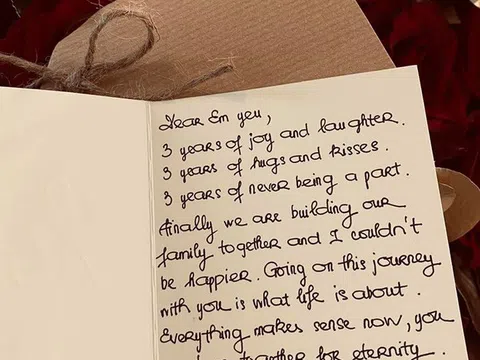 Dear Em yeu,
3 years of joy and laughter.
3 years of hugs and kisses.
3 years of never being a part.
Finally we are building our
family together and I couldn't
be happier. Going on this journey
with you is what life is about.
Everything makes sense now, you
together for eternity.